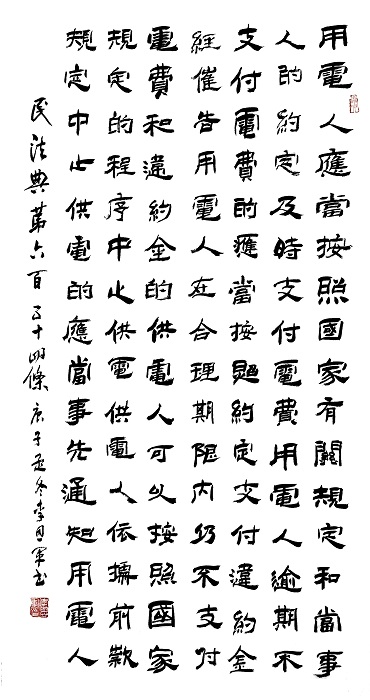 用電人應當按照國家有關規定和當事
人的約定及時支付電費用電人逾期不
支付電費的應當按照約定支付違約金
經催告用電人在合理期限内仍不支付
電費和違約金的供電人可以按照國家
規定的程序中止供電供電人依據前款
規定中止供電的應當事先通知用電人
民法典第六百五十四條 庚子孟冬李軍书